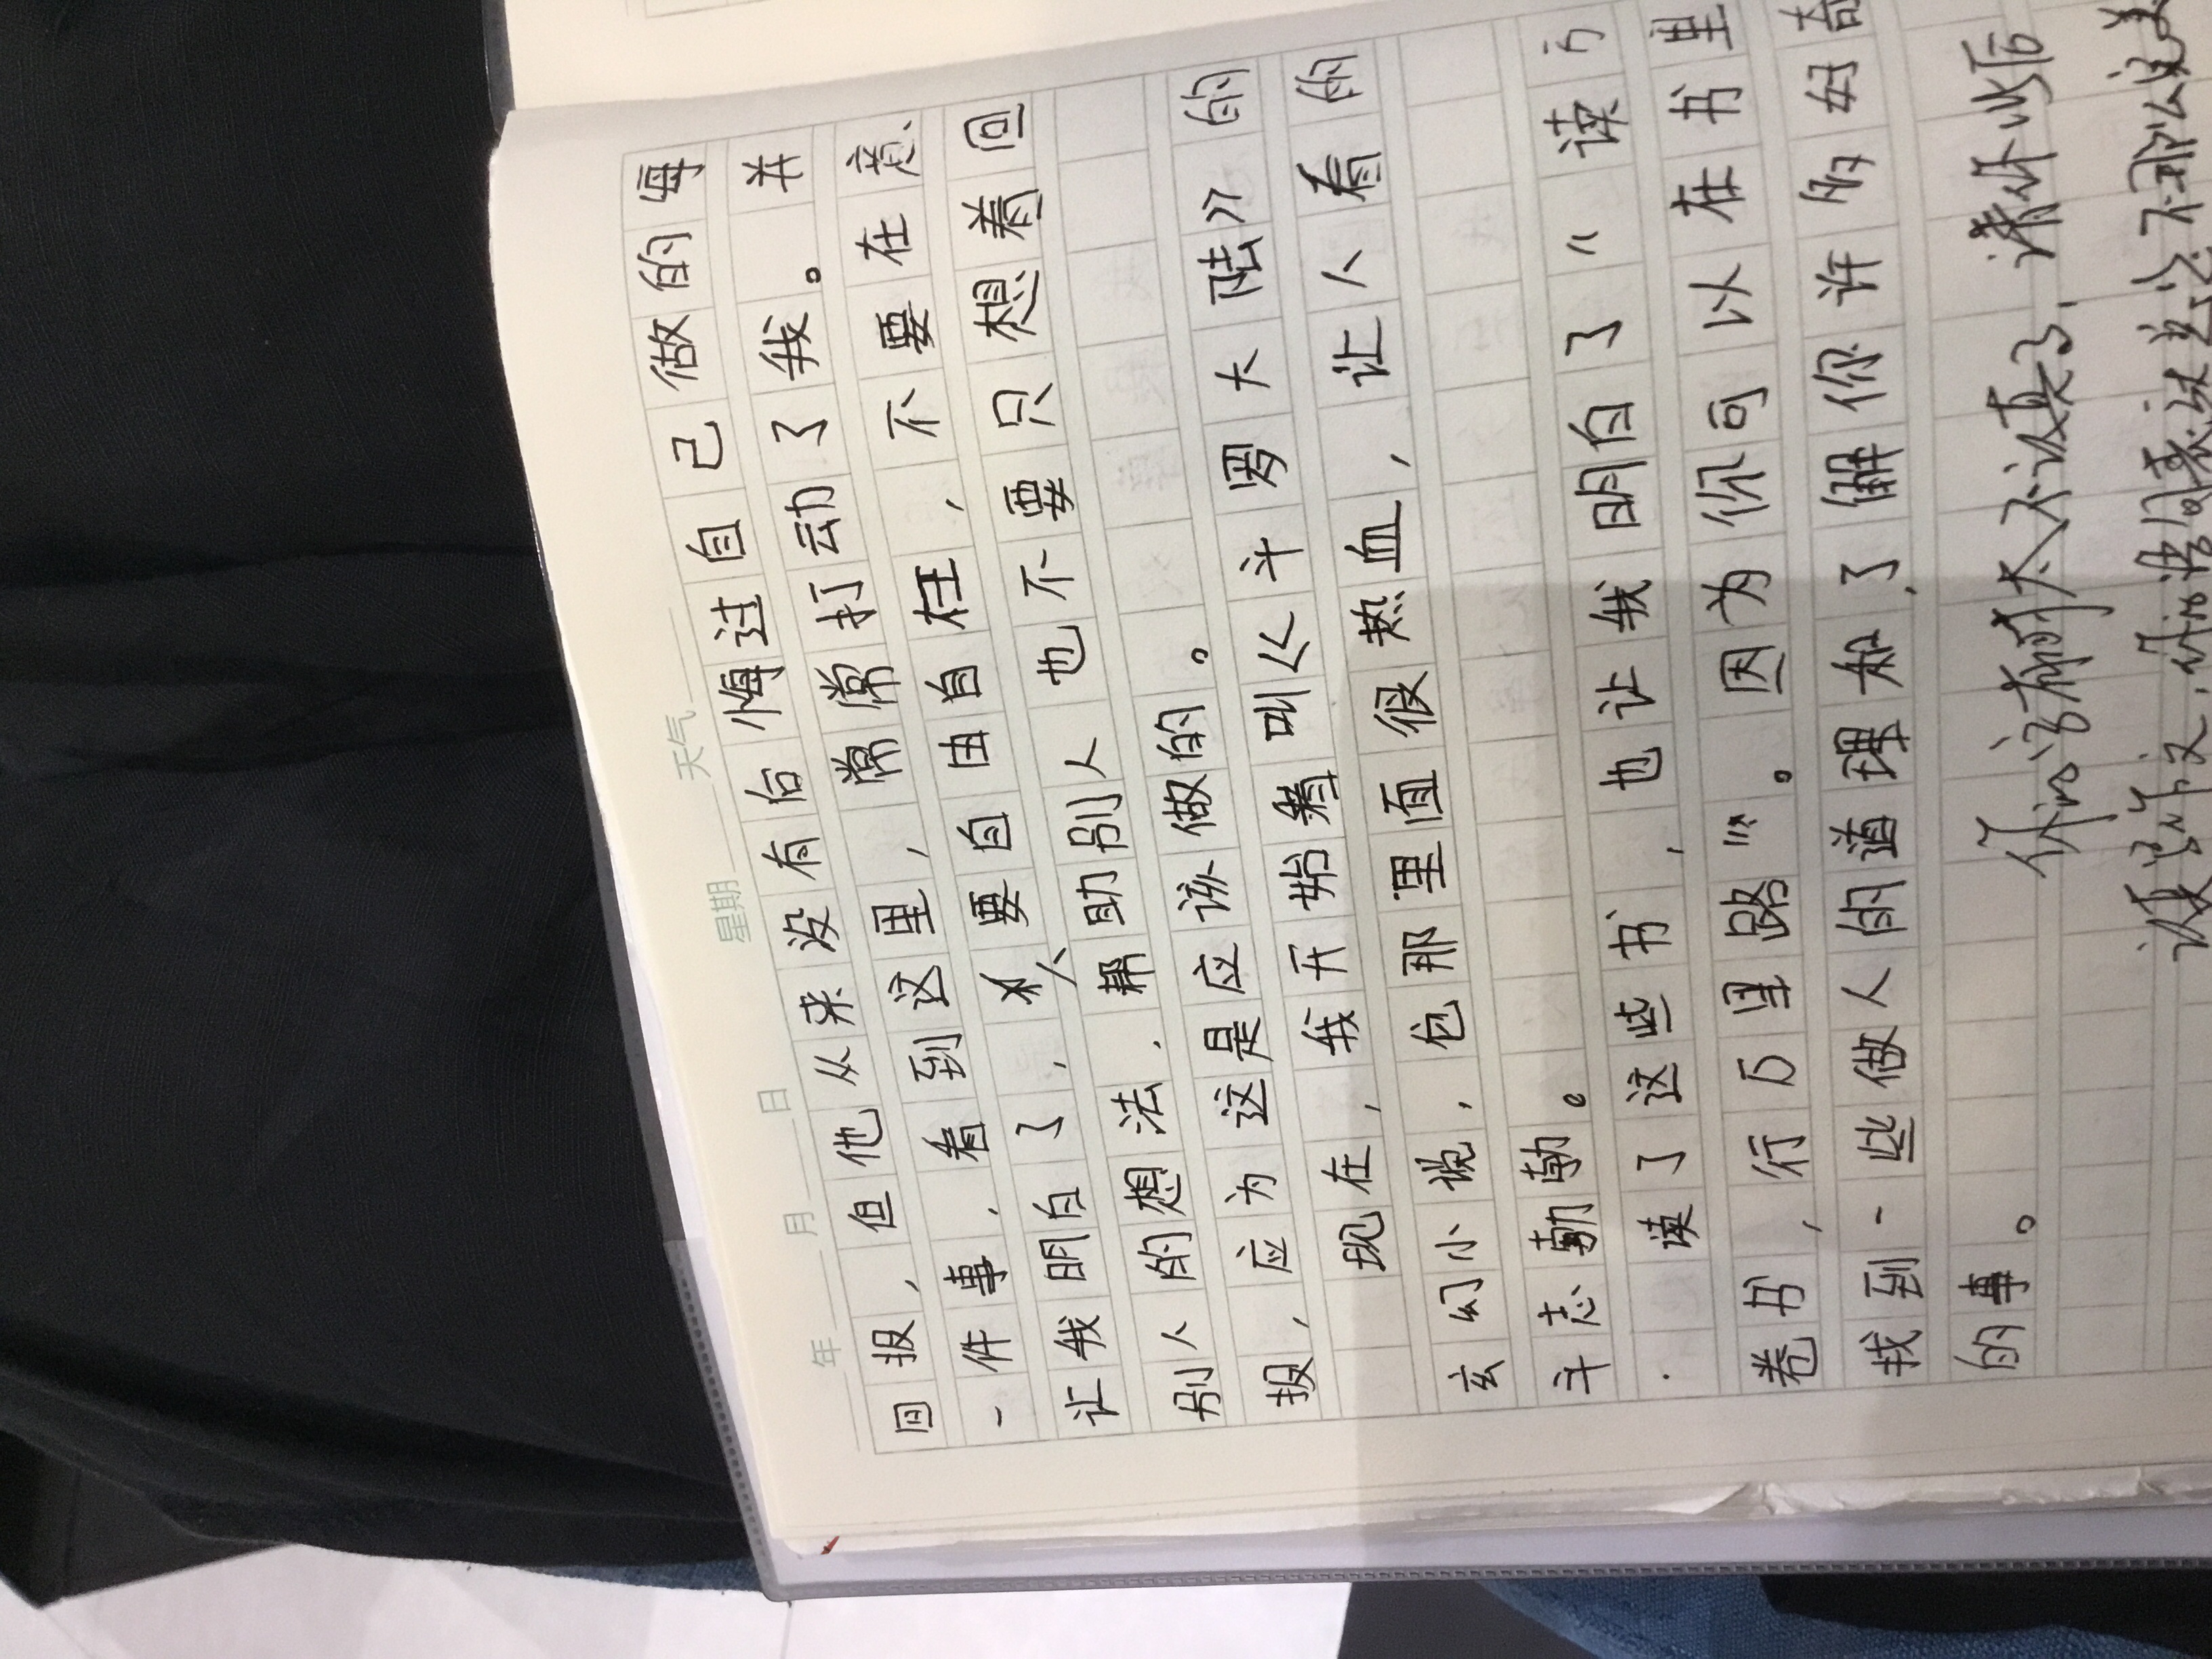 年 月 日 星期 天气
回报，但他从来没有后悔过自己做的每
一件事，看到这里，常常打动了我。并
让我明白了，人要自由自在，不要在意
别人的想法，帮助别人也不要只想着回
报，应为这是应该做的。
现在，我开始看叫《斗罗大陆》的
玄幻小说，包那里面很热血，让人看的
斗志勃勃。
读了这些书，也让我明白了“读万
卷书，行万里路”。因为你可以在书里
我到一些做人的道理，知了解你许多好奇
的事。
你的话有时太不认真了，请你以后